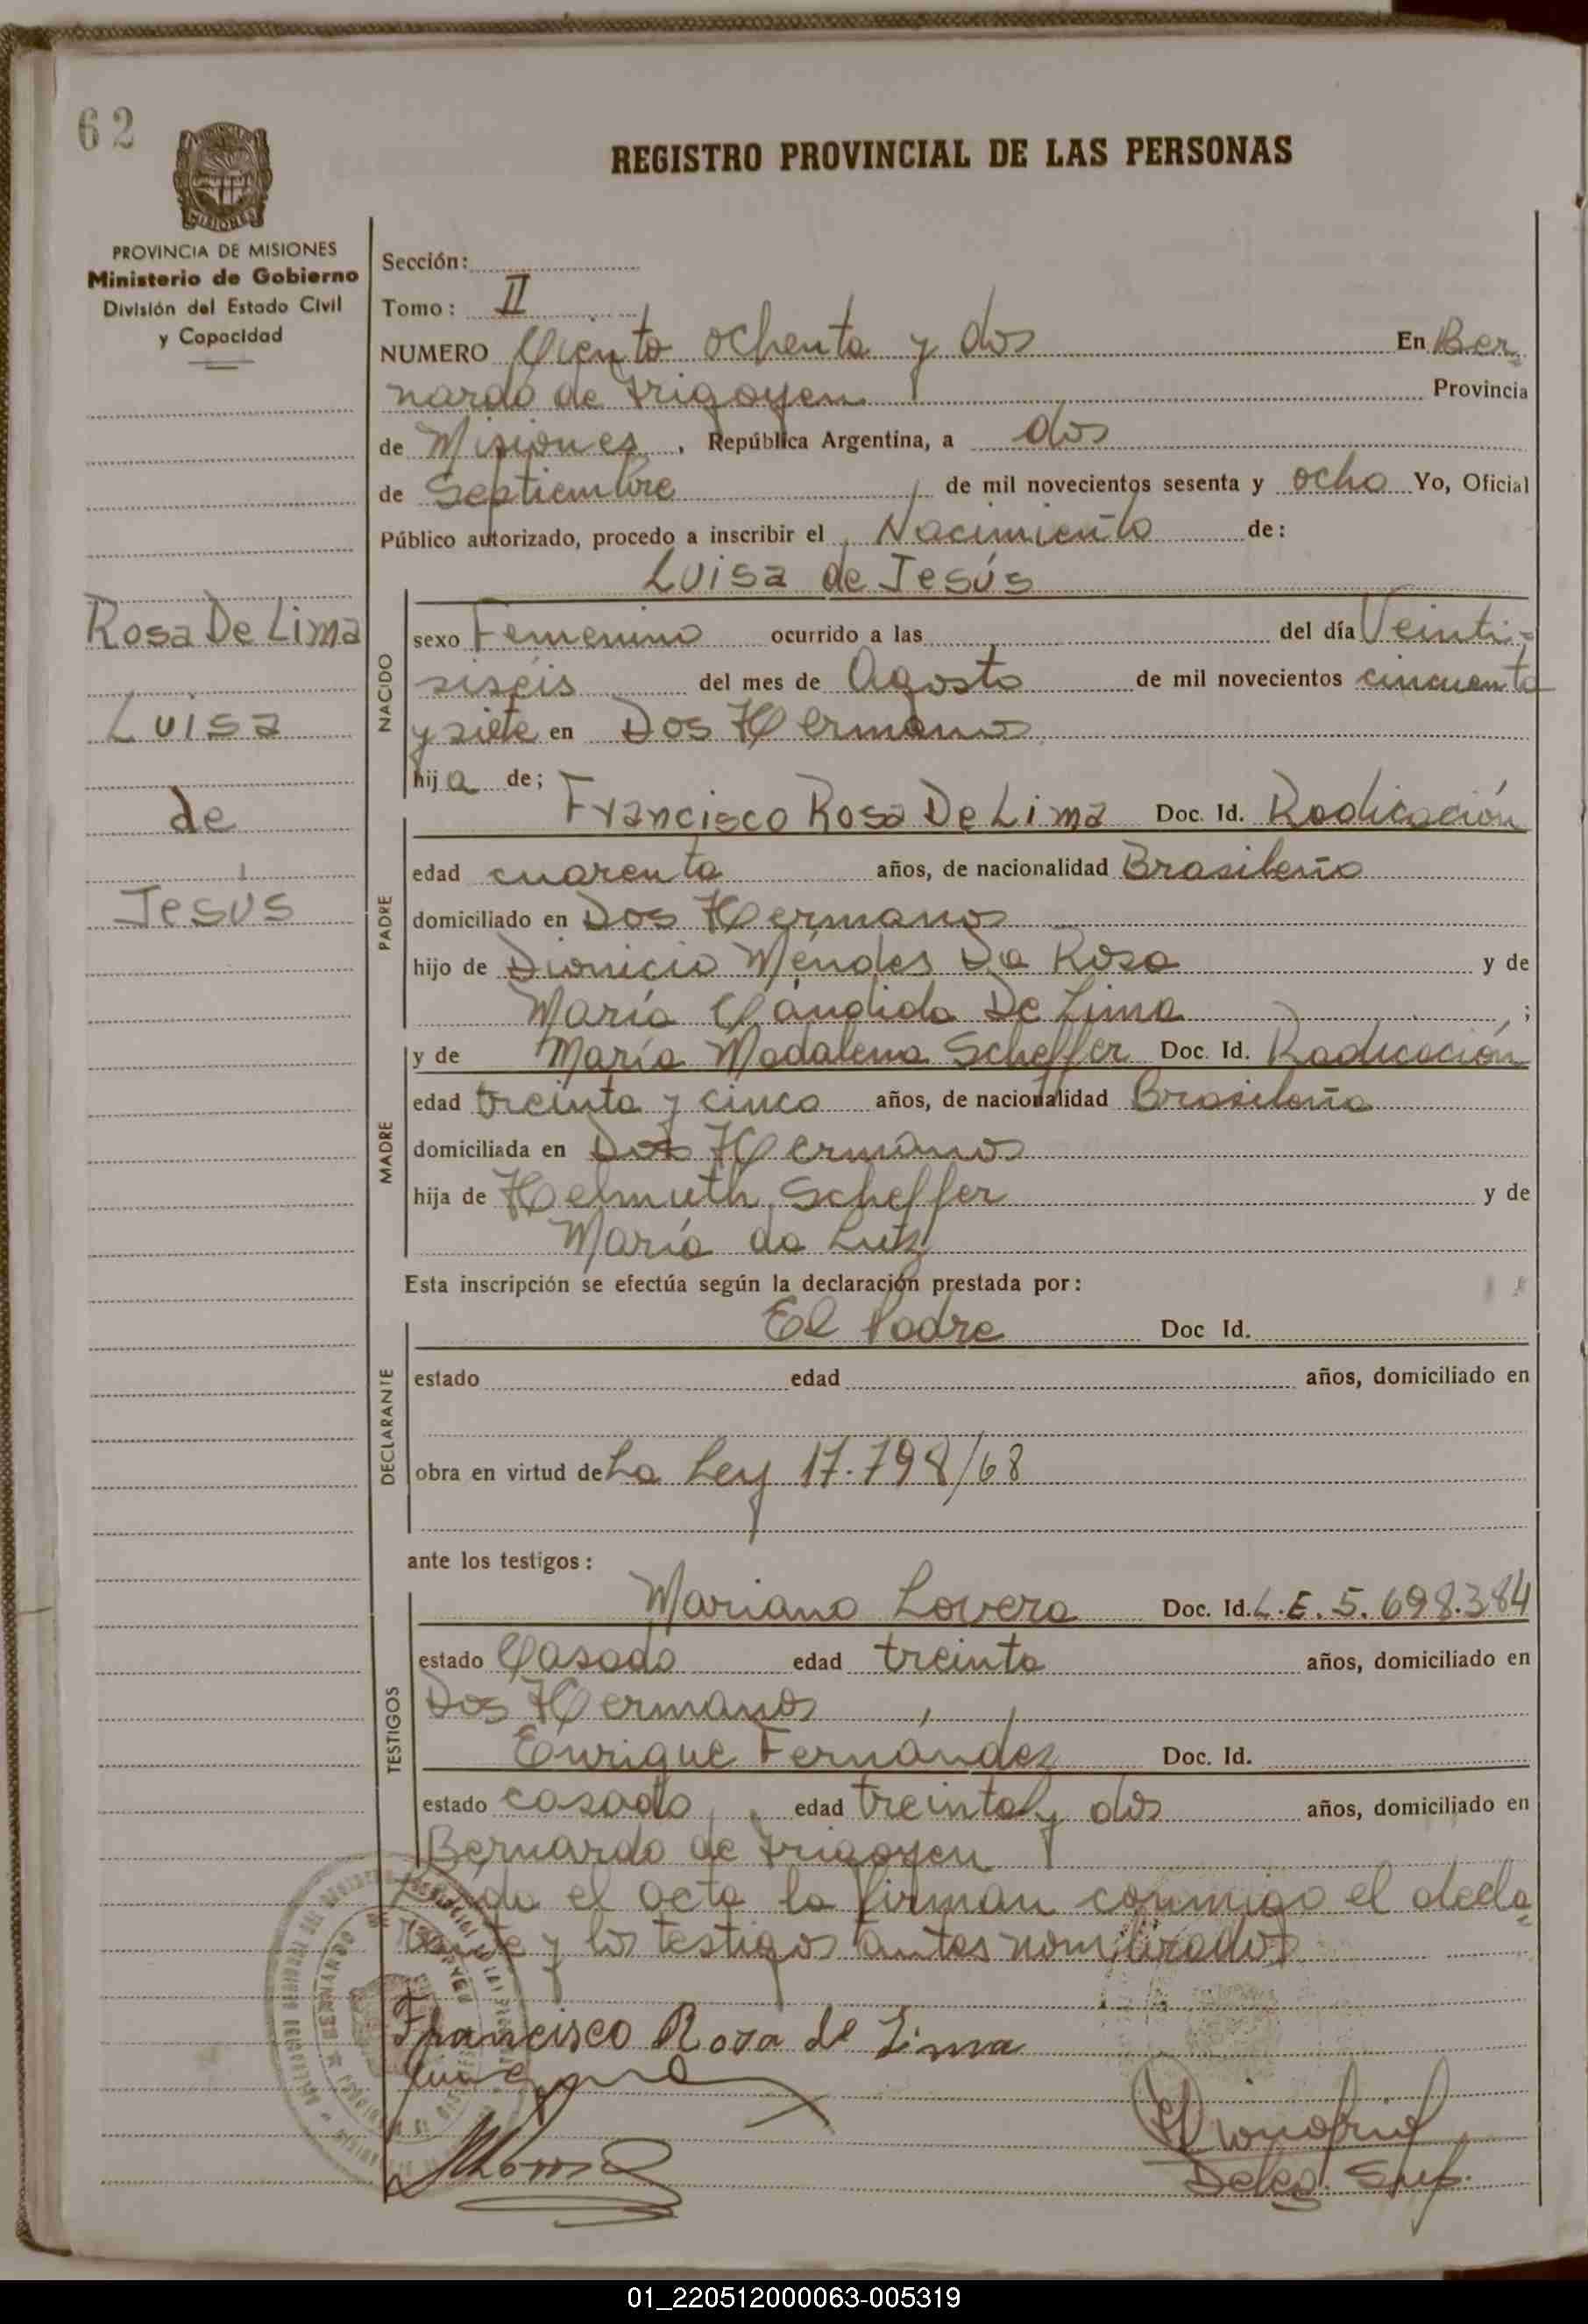 62
REGISTRO PROVINCIAL DE LAS PERSONAS
MISIONES
PROVINCIA DE MISIONES
Ministerio de Gobierno
División del Estado Civil
y Capacidad
Rosa De Lima
Luisa
de
Jesús
Sección:
Tomo: II
NUMERO Ciento ochenta y dos En Ber
nardo de Irigoyen Provincia
de Misiones, República Argentina, a dos
de Septiembre de mil novecientos sesenta y ocho Yo, Oficial
Público autorizado, procedo a inscribir el Nacimiento de:
Luisa de Jesús
NACIDO
sexo Femenino ocurrido a las del día Veinti-
siséis del mes de Agosto de mil novecientos cincuenta
y siete en Dos Hermanos
hija de;
PADRE
Francisco Rosa De Lima Doc. Id. Radicación
edad cuarenta años, de nacionalidad Brasileña
domiciliado en Dos Hermanos
hijo de Dionicio Méndes Da Rosa y de
María Cándida De Lima ;
MADRE
y de María Madalena Scheffer Doc. Id. Radicación
edad treinta y cinco años, de nacionalidad Brasileña
domiciliada en Dos Hermanos
hija de Helmuth Scheffer y de
María da Lutz
Esta inscripción se efectúa según la declaración prestada por:
DECLARANTE
El Padre Doc Id.
estado edad años, domiciliado en
obra en virtud de La Ley 17.798/68
ante los testigos:
TESTIGOS
Mariano Lovera Doc. Id. L.E. 5.698.384
estado Casado edad treinta años, domiciliado en
Dos Hermanos
Enrique Fernández Doc. Id.
estado casado, edad treinta y dos años, domiciliado en
Bernardo de Irigoyen
Leída el acta la firman conmigo el decla
rante y los testigos antes nombrados
Francisco Rosa de Lima
Deleg. Sup.
01_220512000063-005319